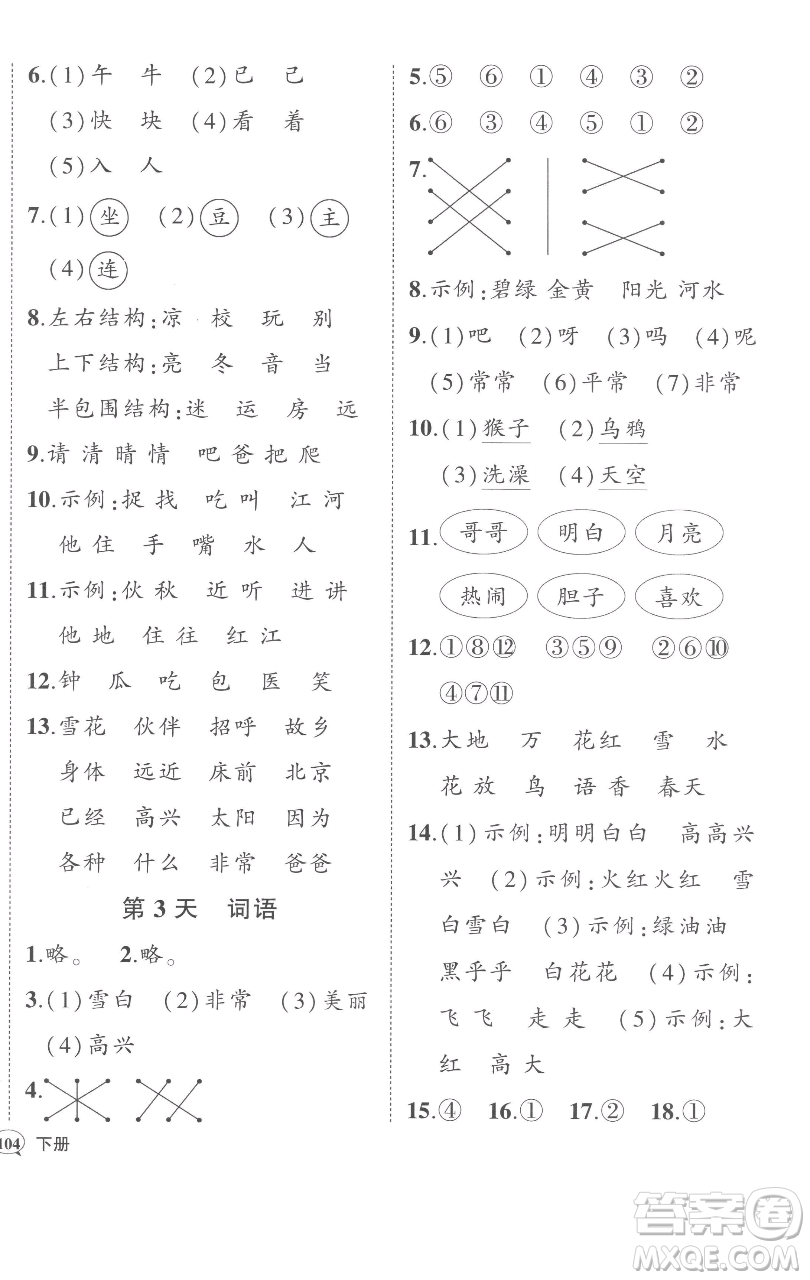 6.(1)午 牛 (2)已 己
(3)快 块 (4)看 着
(5)入 人
7.(1)坐 (2)豆 (3)主
(4)连
8.左右结构:凉 校 玩 别
上下结构:亮 冬 音 当
半包围结构:迷 运 房 远
9.请 清 晴 情 吧 爸 把 爬
10.示例:捉 找 吃 叫 江 河
他 住 手 嘴 水 人
11.示例:伙 秋 近 听 进 讲
他 地 住 往 红 江
12.钟 瓜 吃 包 医 笑
13.雪花 伙伴 招呼 故乡
身体 远近 床前 北京
已经 高兴 太阳 因为
各种 什么 非常 爸爸
第3天 词语
1.略。 2.略。
3.(1)雪白 (2)非常 (3)美丽
(4)高兴
4.
104 下册
5.⑤ ⑥ ① ④ ③ ②
6.⑥ ③ ④ ⑤ ① ②
7.
8.示例:碧绿 金黄 阳光 河水
9.(1)吧 (2)呀 (3)吗 (4)呢
(5)常常 (6)平常 (7)非常
10.(1)猴子 (2)乌鸦
(3)洗澡 (4)天空
11.哥哥 明白 月亮
热闹 胆子 喜欢
12.①⑧⑫ ③⑤⑨ ②⑥⑩
④⑦⑪
13.大地 万 花红 雪 水
花 放 鸟 语 香 春天
14.(1)示例:明明白白 高高兴
兴 (2)示例:火红火红 雪
白雪白 (3)示例:绿油油
黑乎乎 白花花 (4)示例:
飞 飞 走 走 (5)示例:大
红 高 大
15.④ 16.① 17.② 18.①
答案卷
MXQE.COM